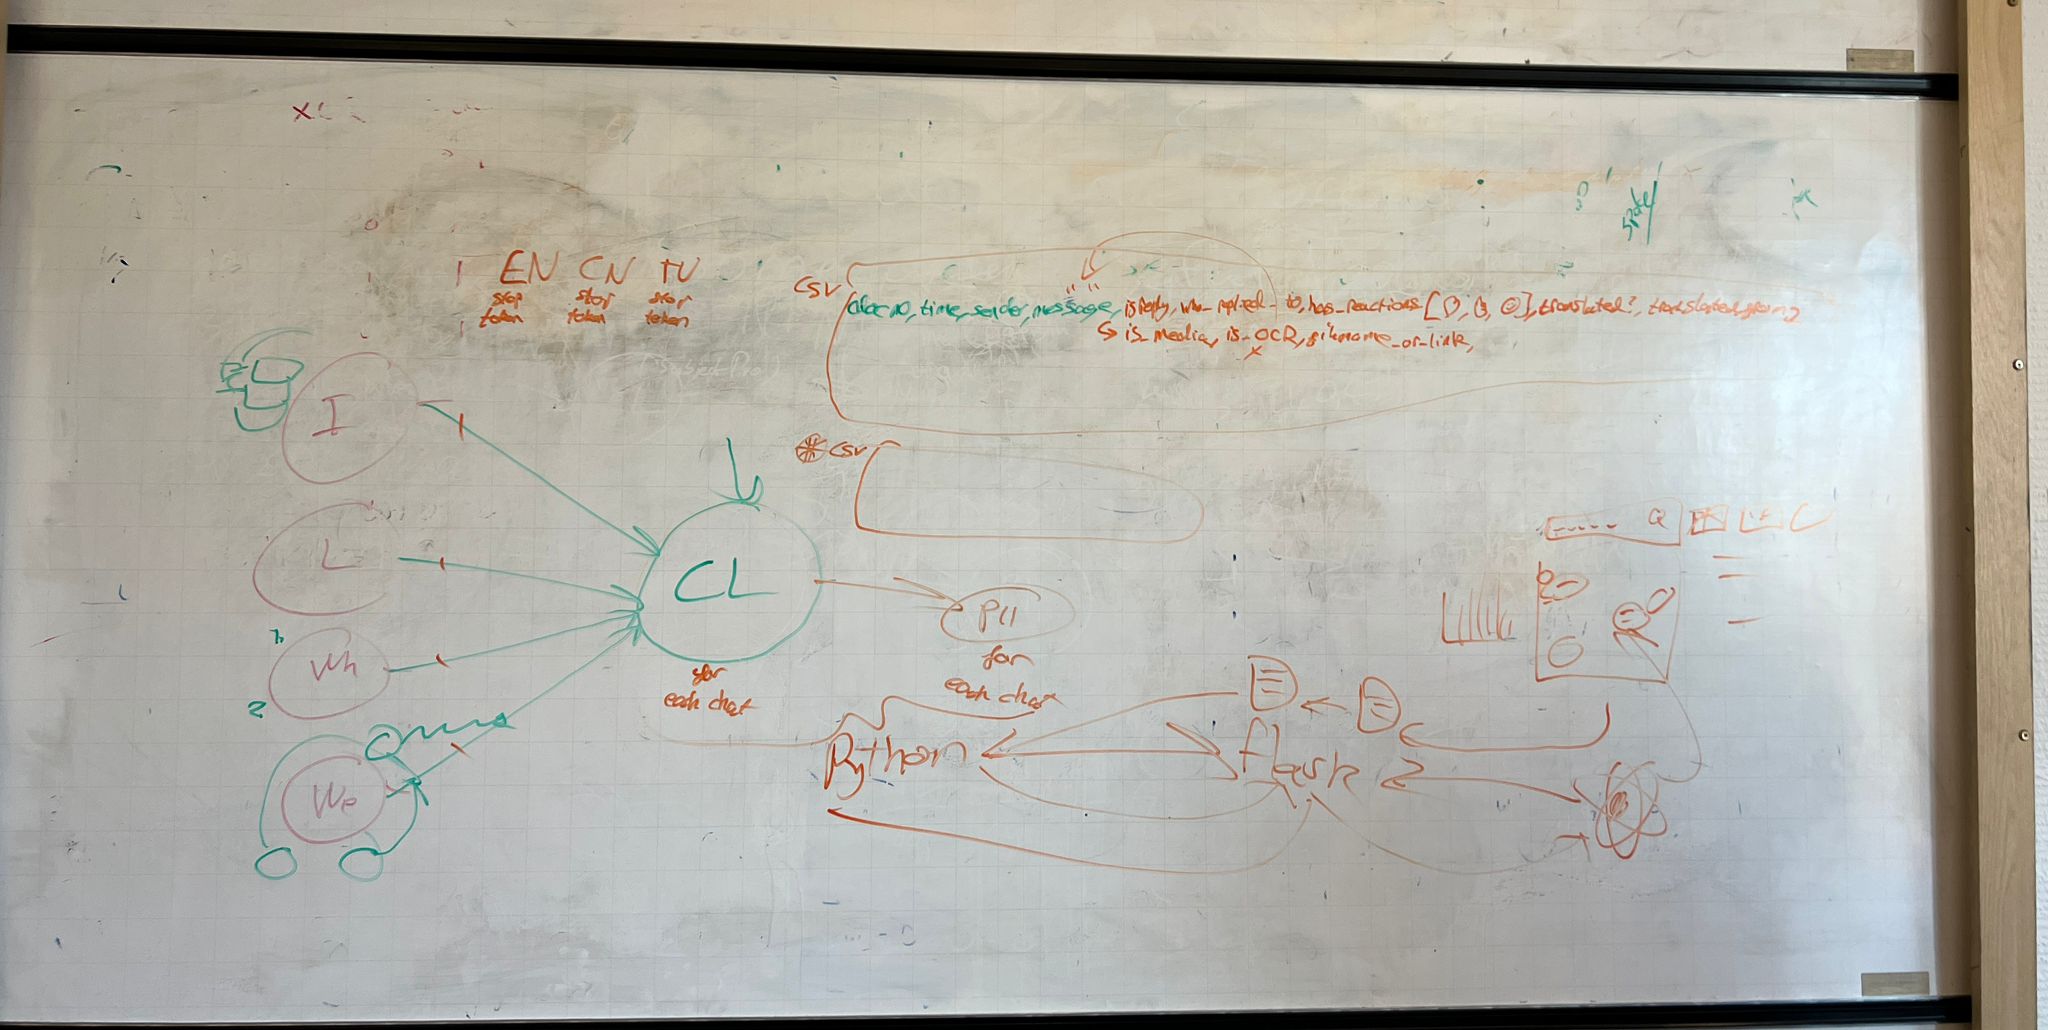 EN CN TU
stop stop stop
token token token
CSV
time, sender, message, is reply, who_replied_to, has_reactions [ , , ☺], translated?, translated_from
↳ is_media, is_OCR, filename_or_link,
CSV
I
L
Wh
We
1
2
CL
for
each chat
PII
for
each chat
Python
flask
Q